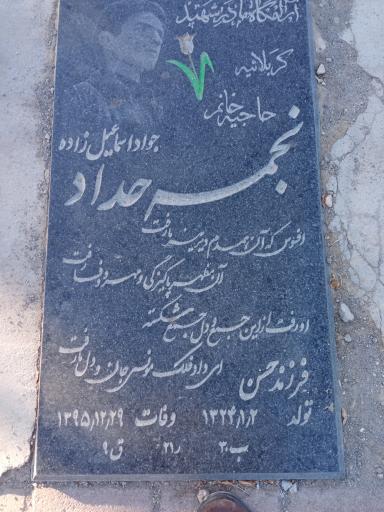 آرامگاه مادر شهید
کربلائیه
حاجیه خانم
جواد اسماعیل زاده
نجمه حداد
افسوس که آن همدم دیرینه ما رفت
آن مظهر پاکیزگی و مهر و وفا رفت
او رفت از این جمع و دل جمع شکسته
ای داد فلک مونس جان و دل ما رفت
فرزند حسن
تولد ۱۳۲۴/۱/۲ وفات ۱۳۹۵/۱۲/۲۹
ب۳۰ ر۲۱ ق۹